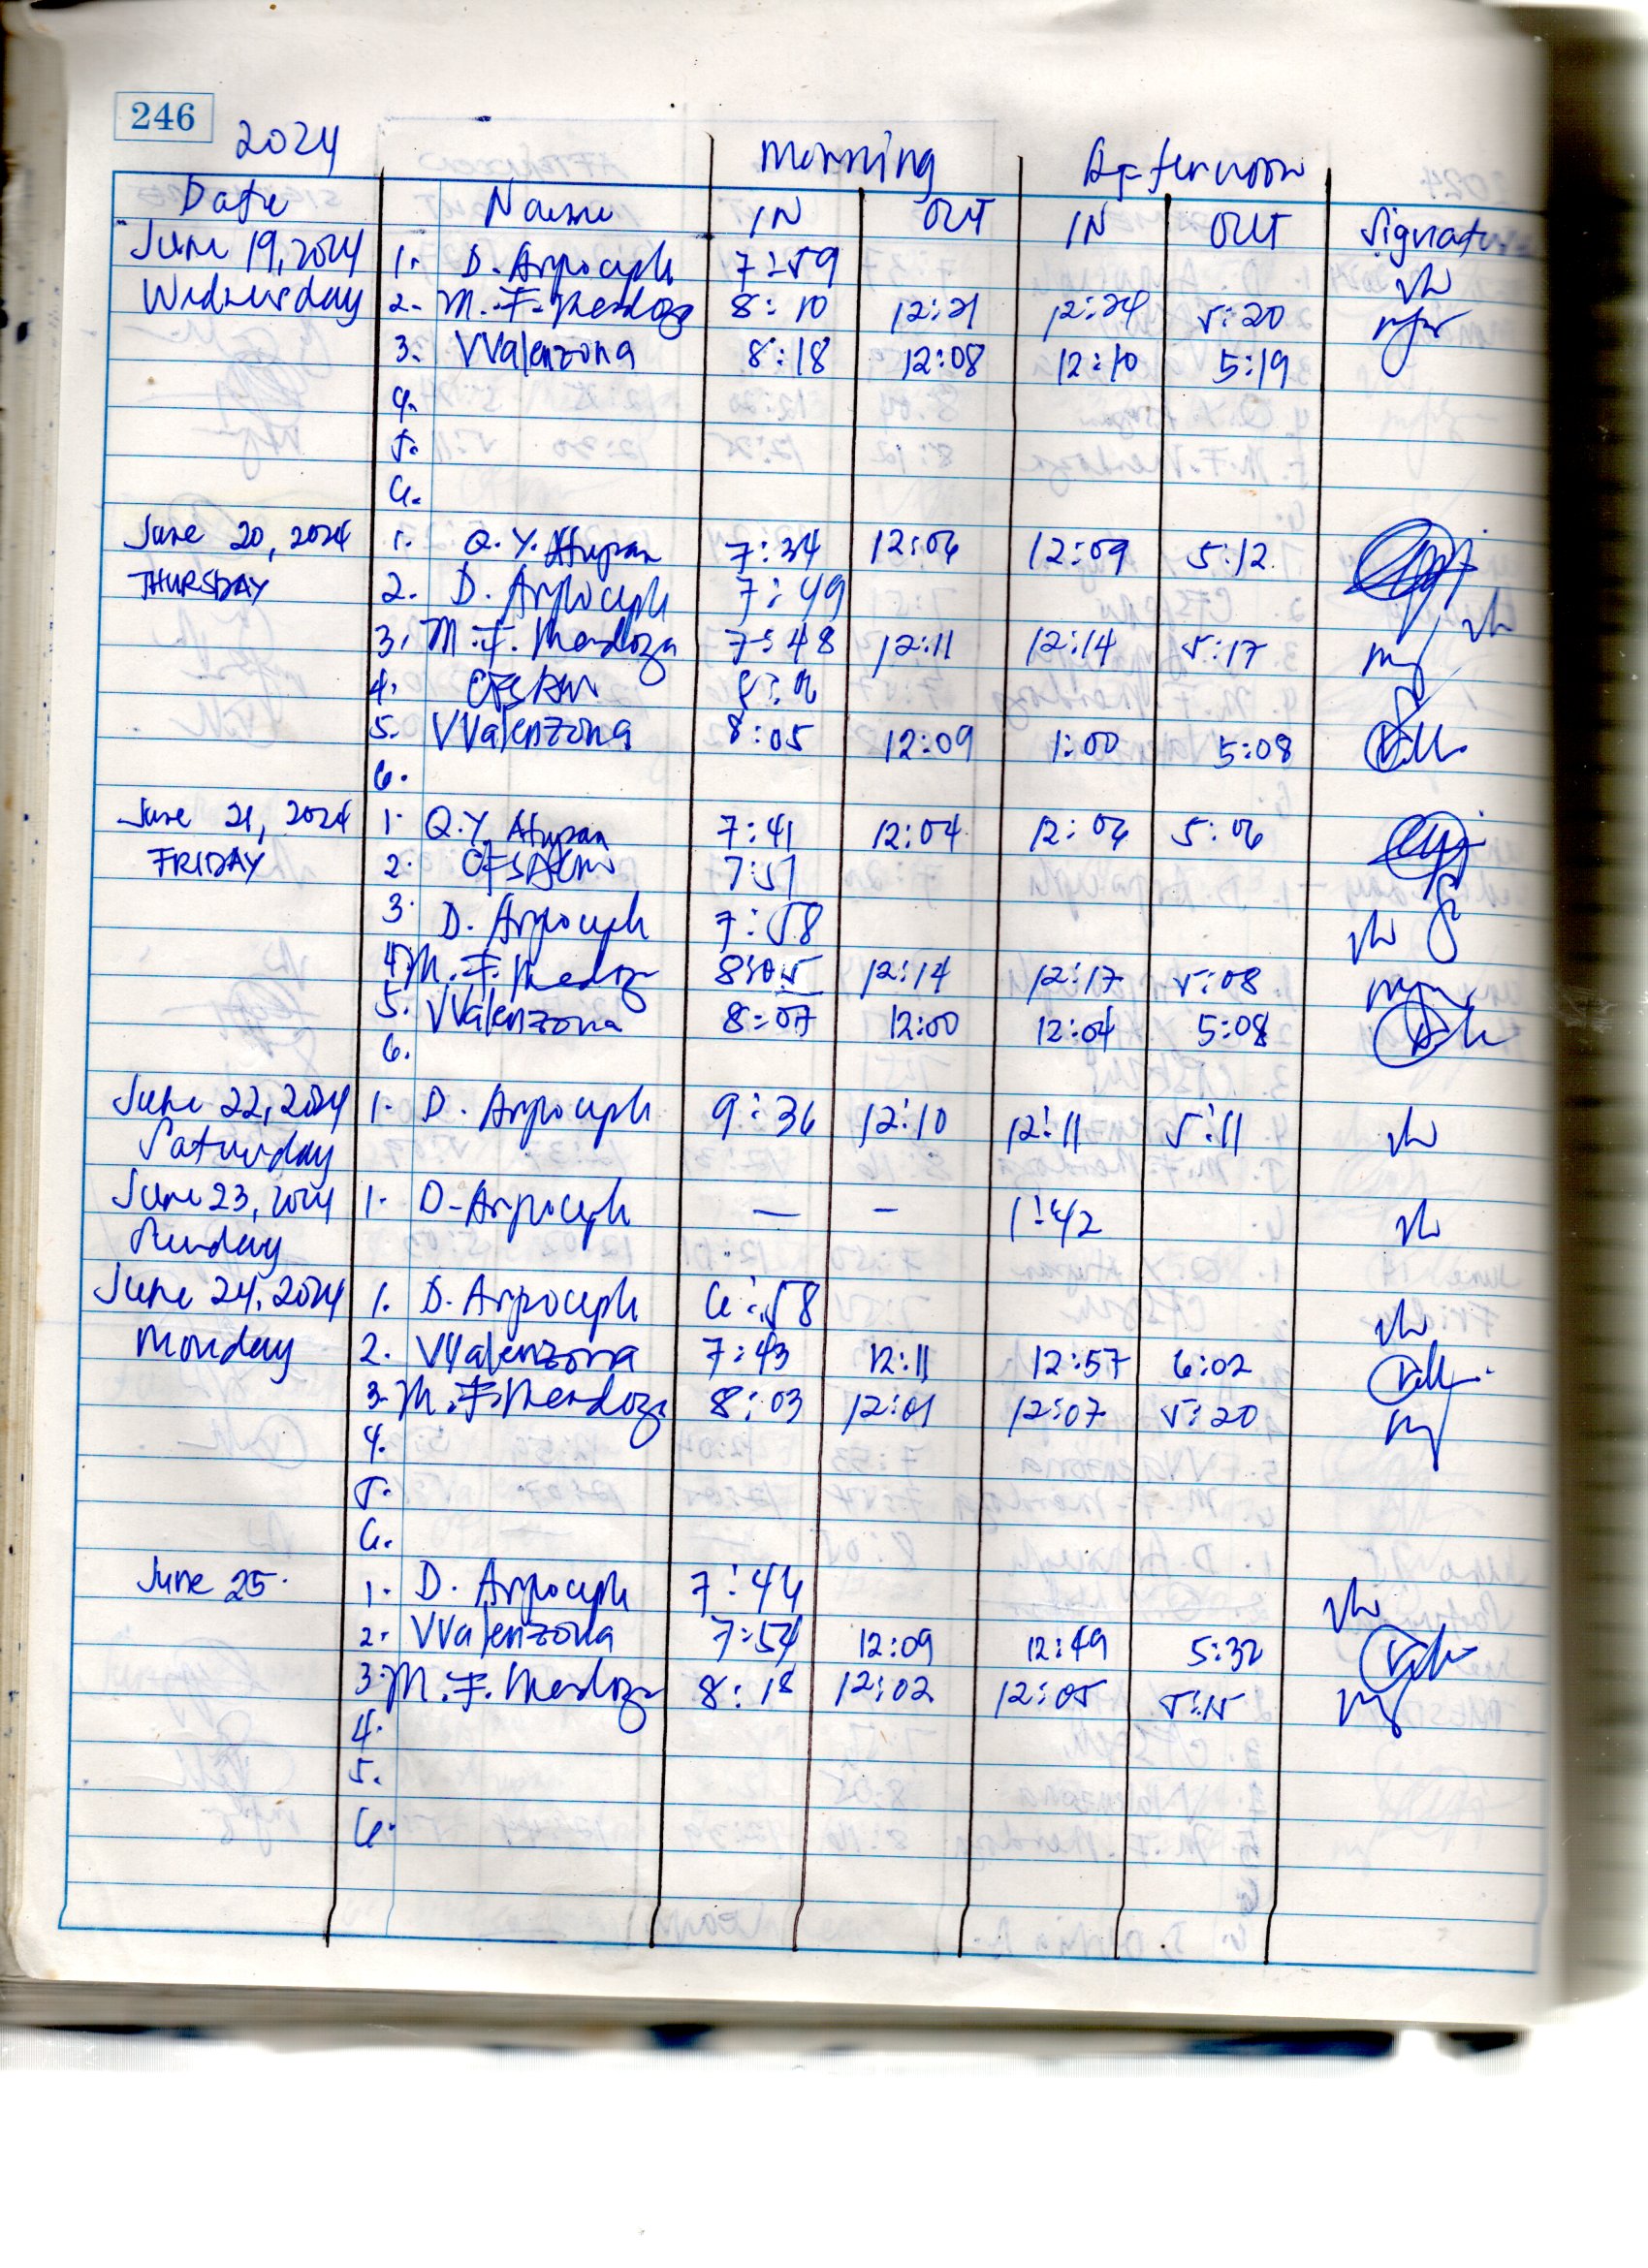 246
2024 Morning Afternoon
Date Name IN OUT IN OUT Signature
June 19, 2024 1. D. 7:59
Wednesday 2. M. F. Mendoza 8:10 12:21 12:24 5:20
3. VValenzona 8:18 12:08 12:10 5:19
4.
5.
6.
June 20, 2024 1. Q. Y. 7:34 12:06 12:09 5:12
THURSDAY 2. D. 7:49
3. M. F. Mendoza 7:48 12:11 12:14 5:17
4.
5. VValenzona 8:05 12:09 1:00 5:08
6.
June 21, 2024 1. Q. Y. 7:41 12:04 12:06 5:06
FRIDAY 2. 7:51
3. D. 7:58
4. M. F. Mendoza 8:05 12:14 12:17 5:08
5. VValenzona 8:07 12:00 12:04 5:08
6.
June 22, 2024 1. D. 9:36 12:10 12:11 5:11
Saturday
June 23, 2024 1. D. — — 1:42
Sunday
June 24, 2024 1. D. 6:58
Monday 2. VValenzona 7:43 12:11 12:57 6:02
3. M. F. Mendoza 8:03 12:01 12:07 5:20
4.
5.
6.
June 25. 1. D. 7:46
2. VValenzona 7:54 12:09 12:49 5:32
3. M. F. Mendoza 8:18 12:02 12:05 5:15
4.
5.
6.